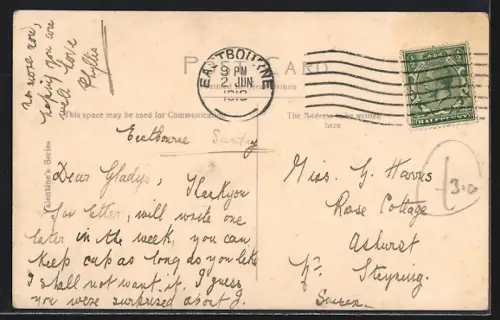 no more now,
hoping you are
well love
Phyllis
POST CARD
EASTBOURNE
9 PM
2 JUN
This space may be used for Communication.
The Address to be written
here.
Valentine's Series
Eastbourne Sunday
Dear Gladys, Thankyou
for letter, will write one
later in the week, you can
keep cup as long as you like
I shall not want it. I guess
you were surprised about J.
Miss. G. Harris
Rose Cottage
Ashurst
Nr. Steyning.
Sussex.
HALFPENNY